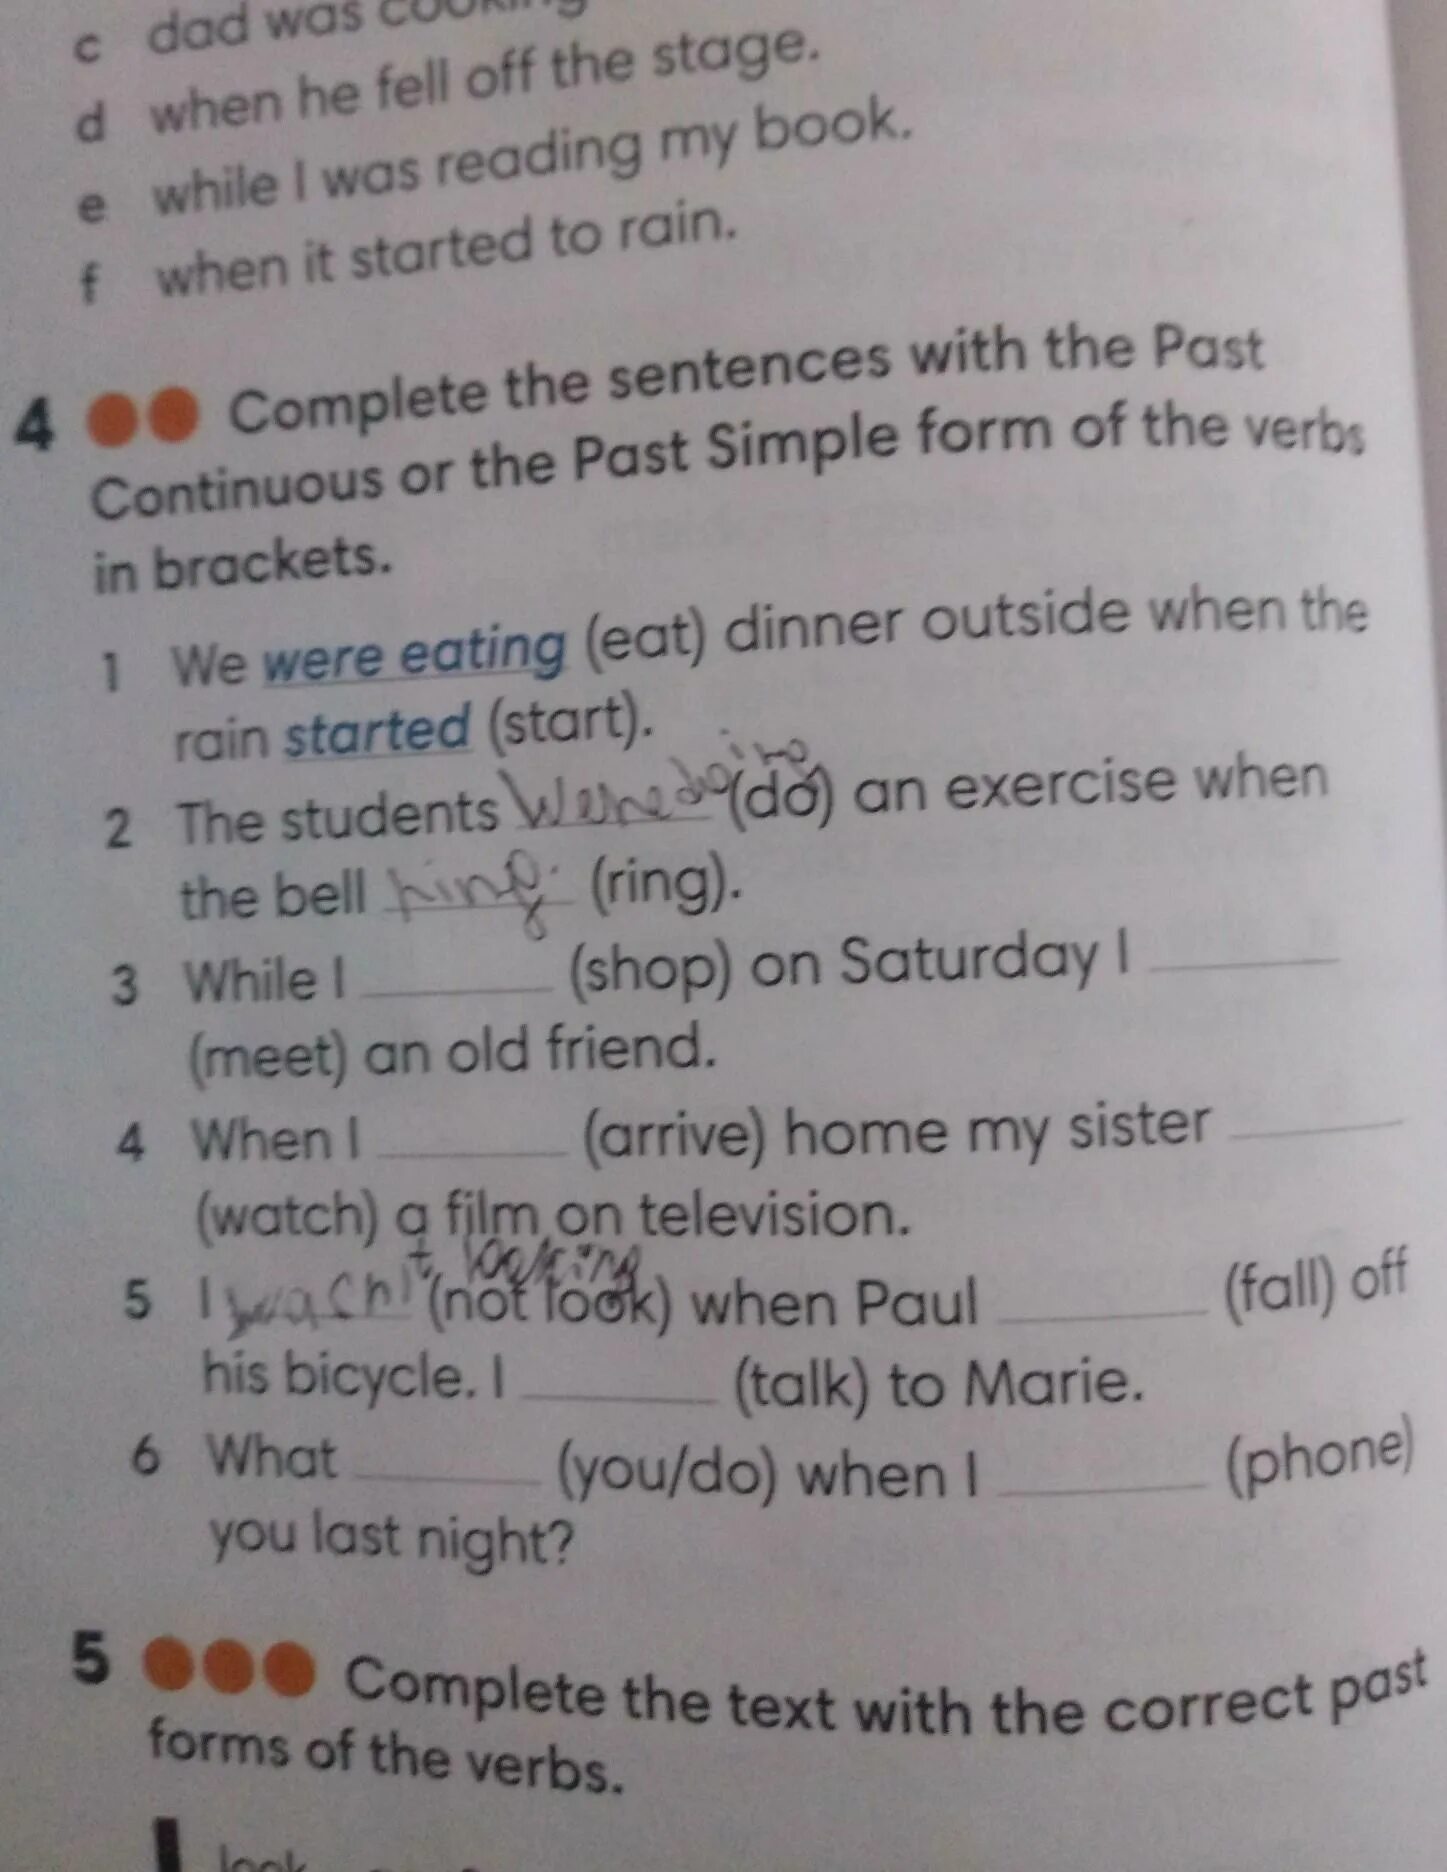 c dad was cooking
d when he fell off the stage.
e while I was reading my book.
f when it started to rain.
4 Complete the sentences with the Past
Continuous or the Past Simple form of the verbs
in brackets.
1 We were eating (eat) dinner outside when the
rain started (start).
2 The students were doing (do) an exercise when
the bell ring. (ring).
3 While I ______ (shop) on Saturday I ______
(meet) an old friend.
4 When I ______ (arrive) home my sister ______
(watch) a film on television.
5 I looking (not look) when Paul ______ (fall) off
his bicycle. I ______ (talk) to Marie.
6 What ______ (you/do) when I ______ (phone)
you last night?
5 Complete the text with the correct past
forms of the verbs.
look